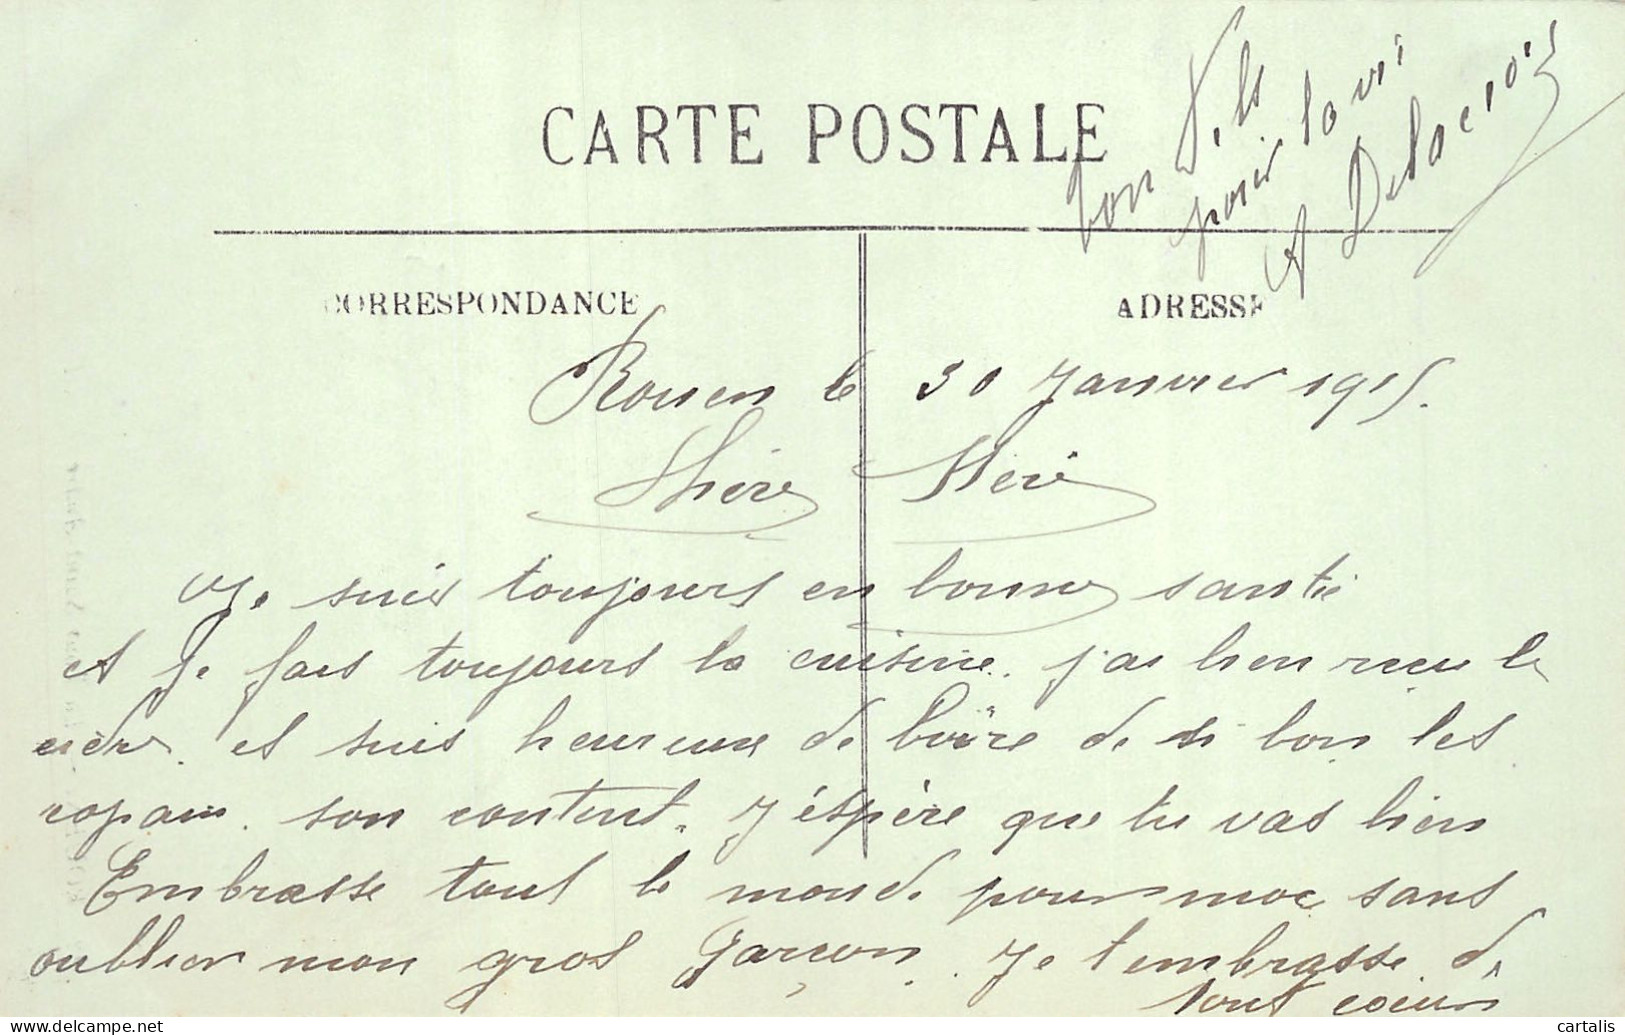 CARTE POSTALE
CORRESPONDANCE
ADRESSE
Rouen le 30 Janvier 1915.
Chère Mère
Je suis toujours en bonne santé
et je fais toujours la cuisine. j'ai bien reçu le
cidre. et suis heureux de boire de si bon les
copain son content. J'éspère que tu vas bien
Embrasse tout le monde pour moi sans
oublier mon gros Garçon. Je t'embrasse de
tout coeur
ton fils
pour la vie
A Delacroix
cartalis
delcampe.net